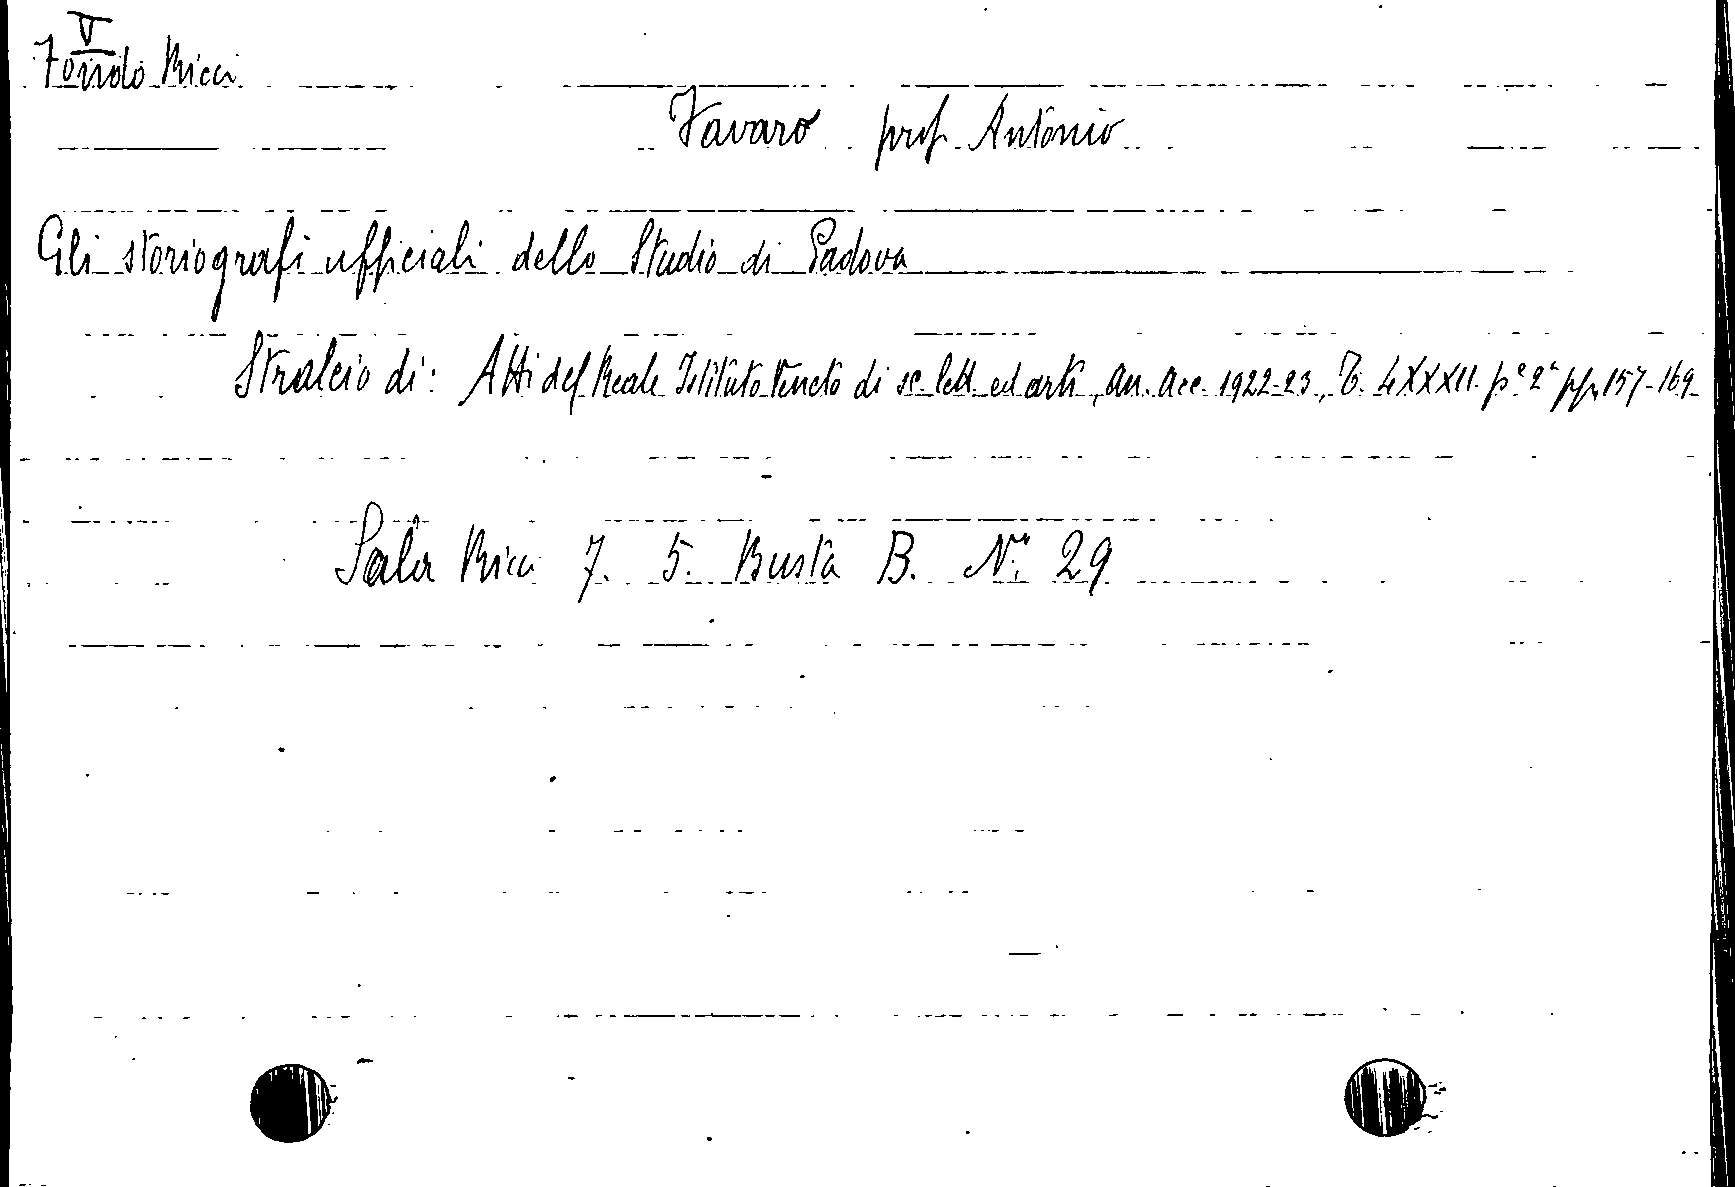 V
Fondo Ricci
Favaro prof. Antonio
Gli storiografi ufficiali dello Studio di Padova
Stralcio di: Atti del Reale Istituto Veneto di sc. lett. ed arti, an. acc. 1922-23, T. LXXXII. pe 2a pp. 157-169
Sala Ricci 7. 5. Busta B. No. 29